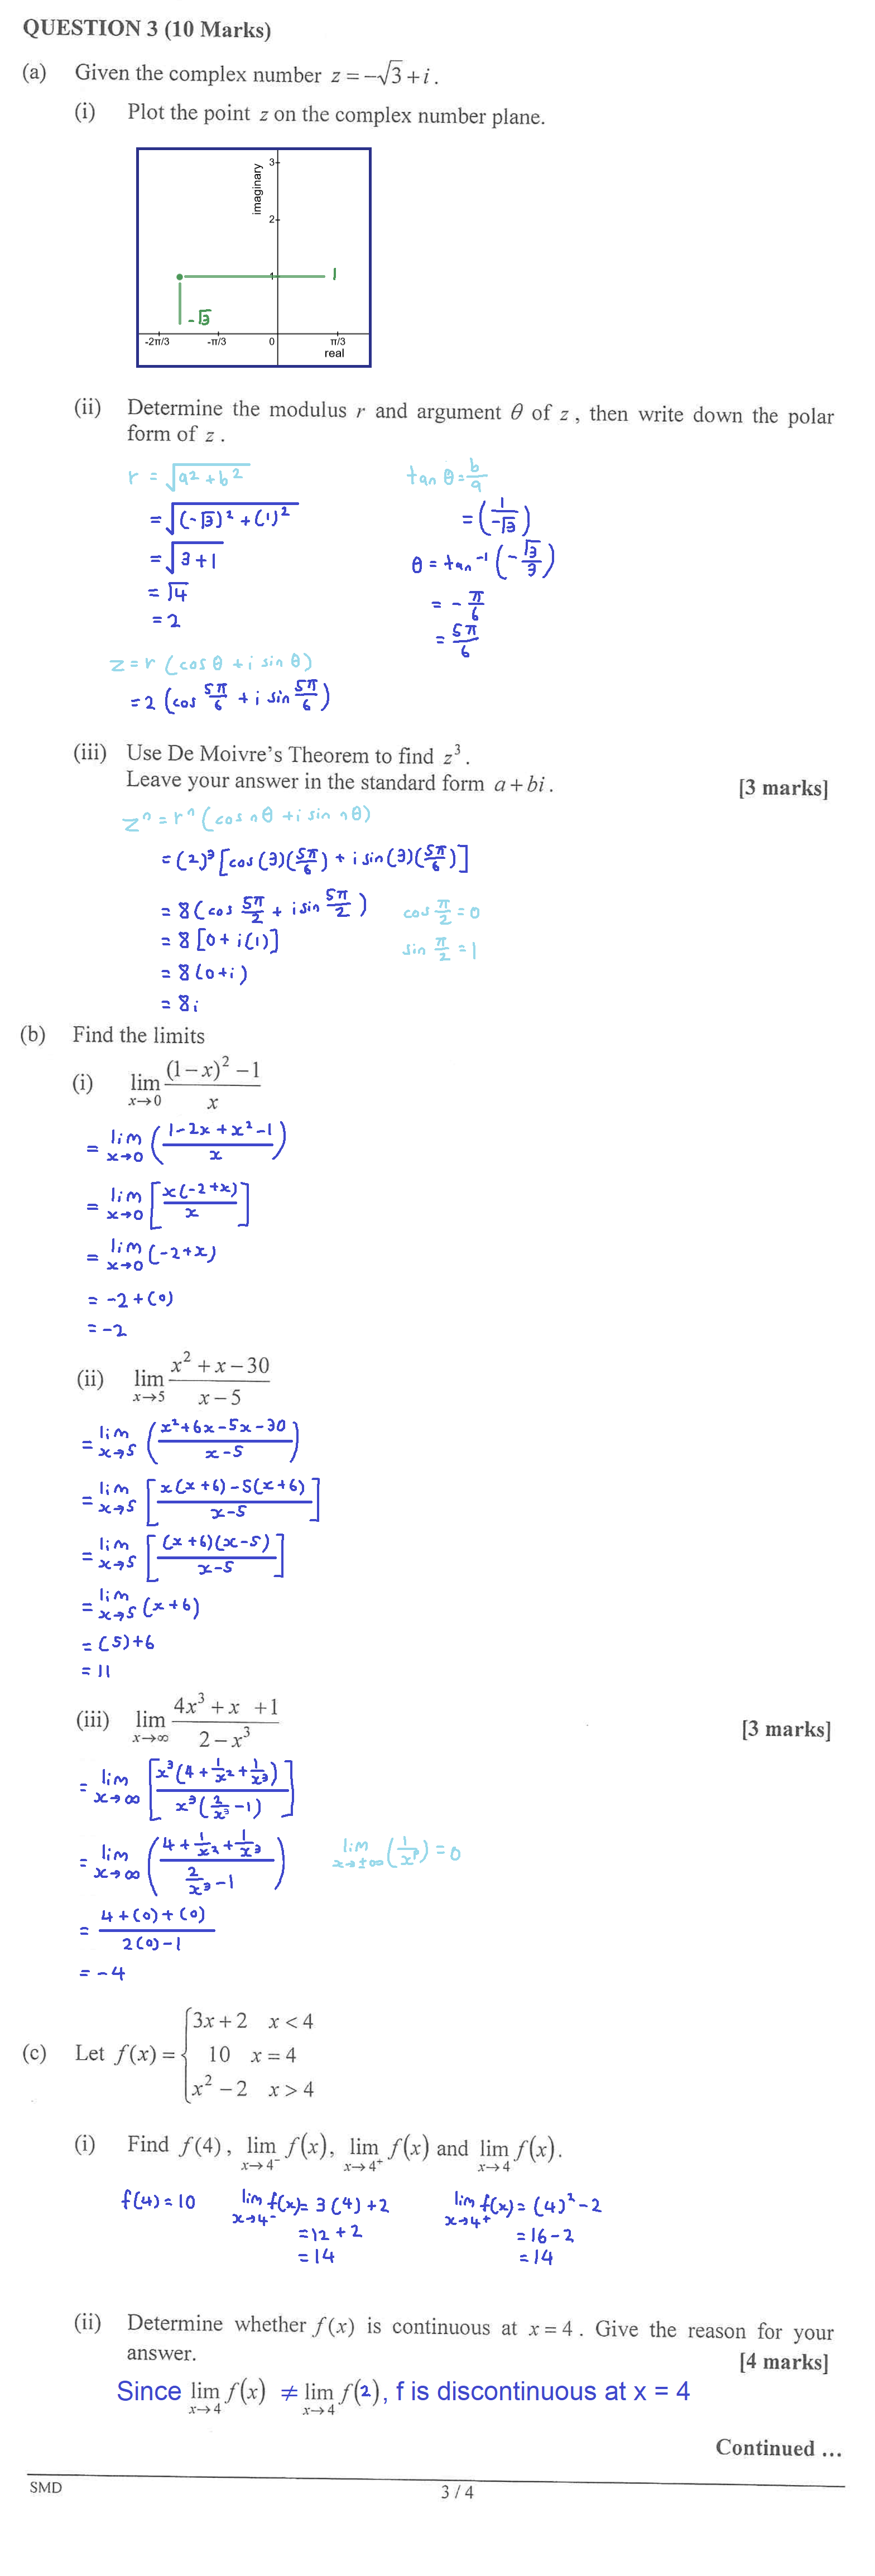 QUESTION 3 (10 Marks)
(a) Given the complex number z = −√3 + i .
(i) Plot the point z on the complex number plane.
imaginary
3
2
1 1
-√3
-2π/3 -π/3 0 π/3
real
(ii) Determine the modulus r and argument θ of z , then write down the polar
form of z .
r = √(a² + b²) tan θ = b/a
= √((-√3)² + (1)²) = (1/-√3)
= √(3+1) θ = tan⁻¹ (-√3/3)
= √4 = -π/6
= 2 = 5π/6
z = r (cos θ + i sin θ)
= 2 (cos 5π/6 + i sin 5π/6)
(iii) Use De Moivre's Theorem to find z³ .
Leave your answer in the standard form a + bi . [3 marks]
zⁿ = rⁿ (cos nθ + i sin nθ)
= (2)³ [cos (3)(5π/6) + i sin (3)(5π/6)]
= 8 (cos 5π/2 + i sin 5π/2) cos π/2 = 0
= 8 [0 + i(1)] sin π/2 = 1
= 8 (0+i)
= 8i
(b) Find the limits
(i) lim x→0 ((1−x)² −1)/x
= lim x→0 ((1-2x+x²-1)/x)
= lim x→0 [x(-2+x)/x]
= lim x→0 (-2+x)
= -2+(0)
= -2
(ii) lim x→5 (x² + x − 30)/(x − 5)
= lim x→5 ((x²+6x-5x-30)/(x-5))
= lim x→5 [(x(x+6)-5(x+6))/(x-5)]
= lim x→5 [(x+6)(x-5)/(x-5)]
= lim x→5 (x+6)
= (5)+6
= 11
(iii) lim x→∞ (4x³ + x +1)/(2 − x³) [3 marks]
= lim x→∞ [x³(4+1/x²+1/x³)/x³(2/x³-1)]
= lim x→∞ ((4+1/x²+1/x³)/(2/x³-1)) lim x→±∞ (1/xᵖ) = 0
= (4+(0)+(0))/(2(0)-1)
= -4
(c) Let f(x) = { 3x + 2 x < 4
10 x = 4
x² − 2 x > 4
(i) Find f(4) , lim x→4⁻ f(x), lim x→4⁺ f(x) and lim x→4 f(x).
f(4) = 10 lim x→4⁻ f(x) = 3(4)+2 lim x→4⁺ f(x) = (4)²-2
= 12+2 = 16-2
= 14 = 14
(ii) Determine whether f(x) is continuous at x = 4 . Give the reason for your
answer. [4 marks]
Since lim x→4 f(x) ≠ lim x→4 f(2), f is discontinuous at x = 4
Continued ...
SMD 3 / 4